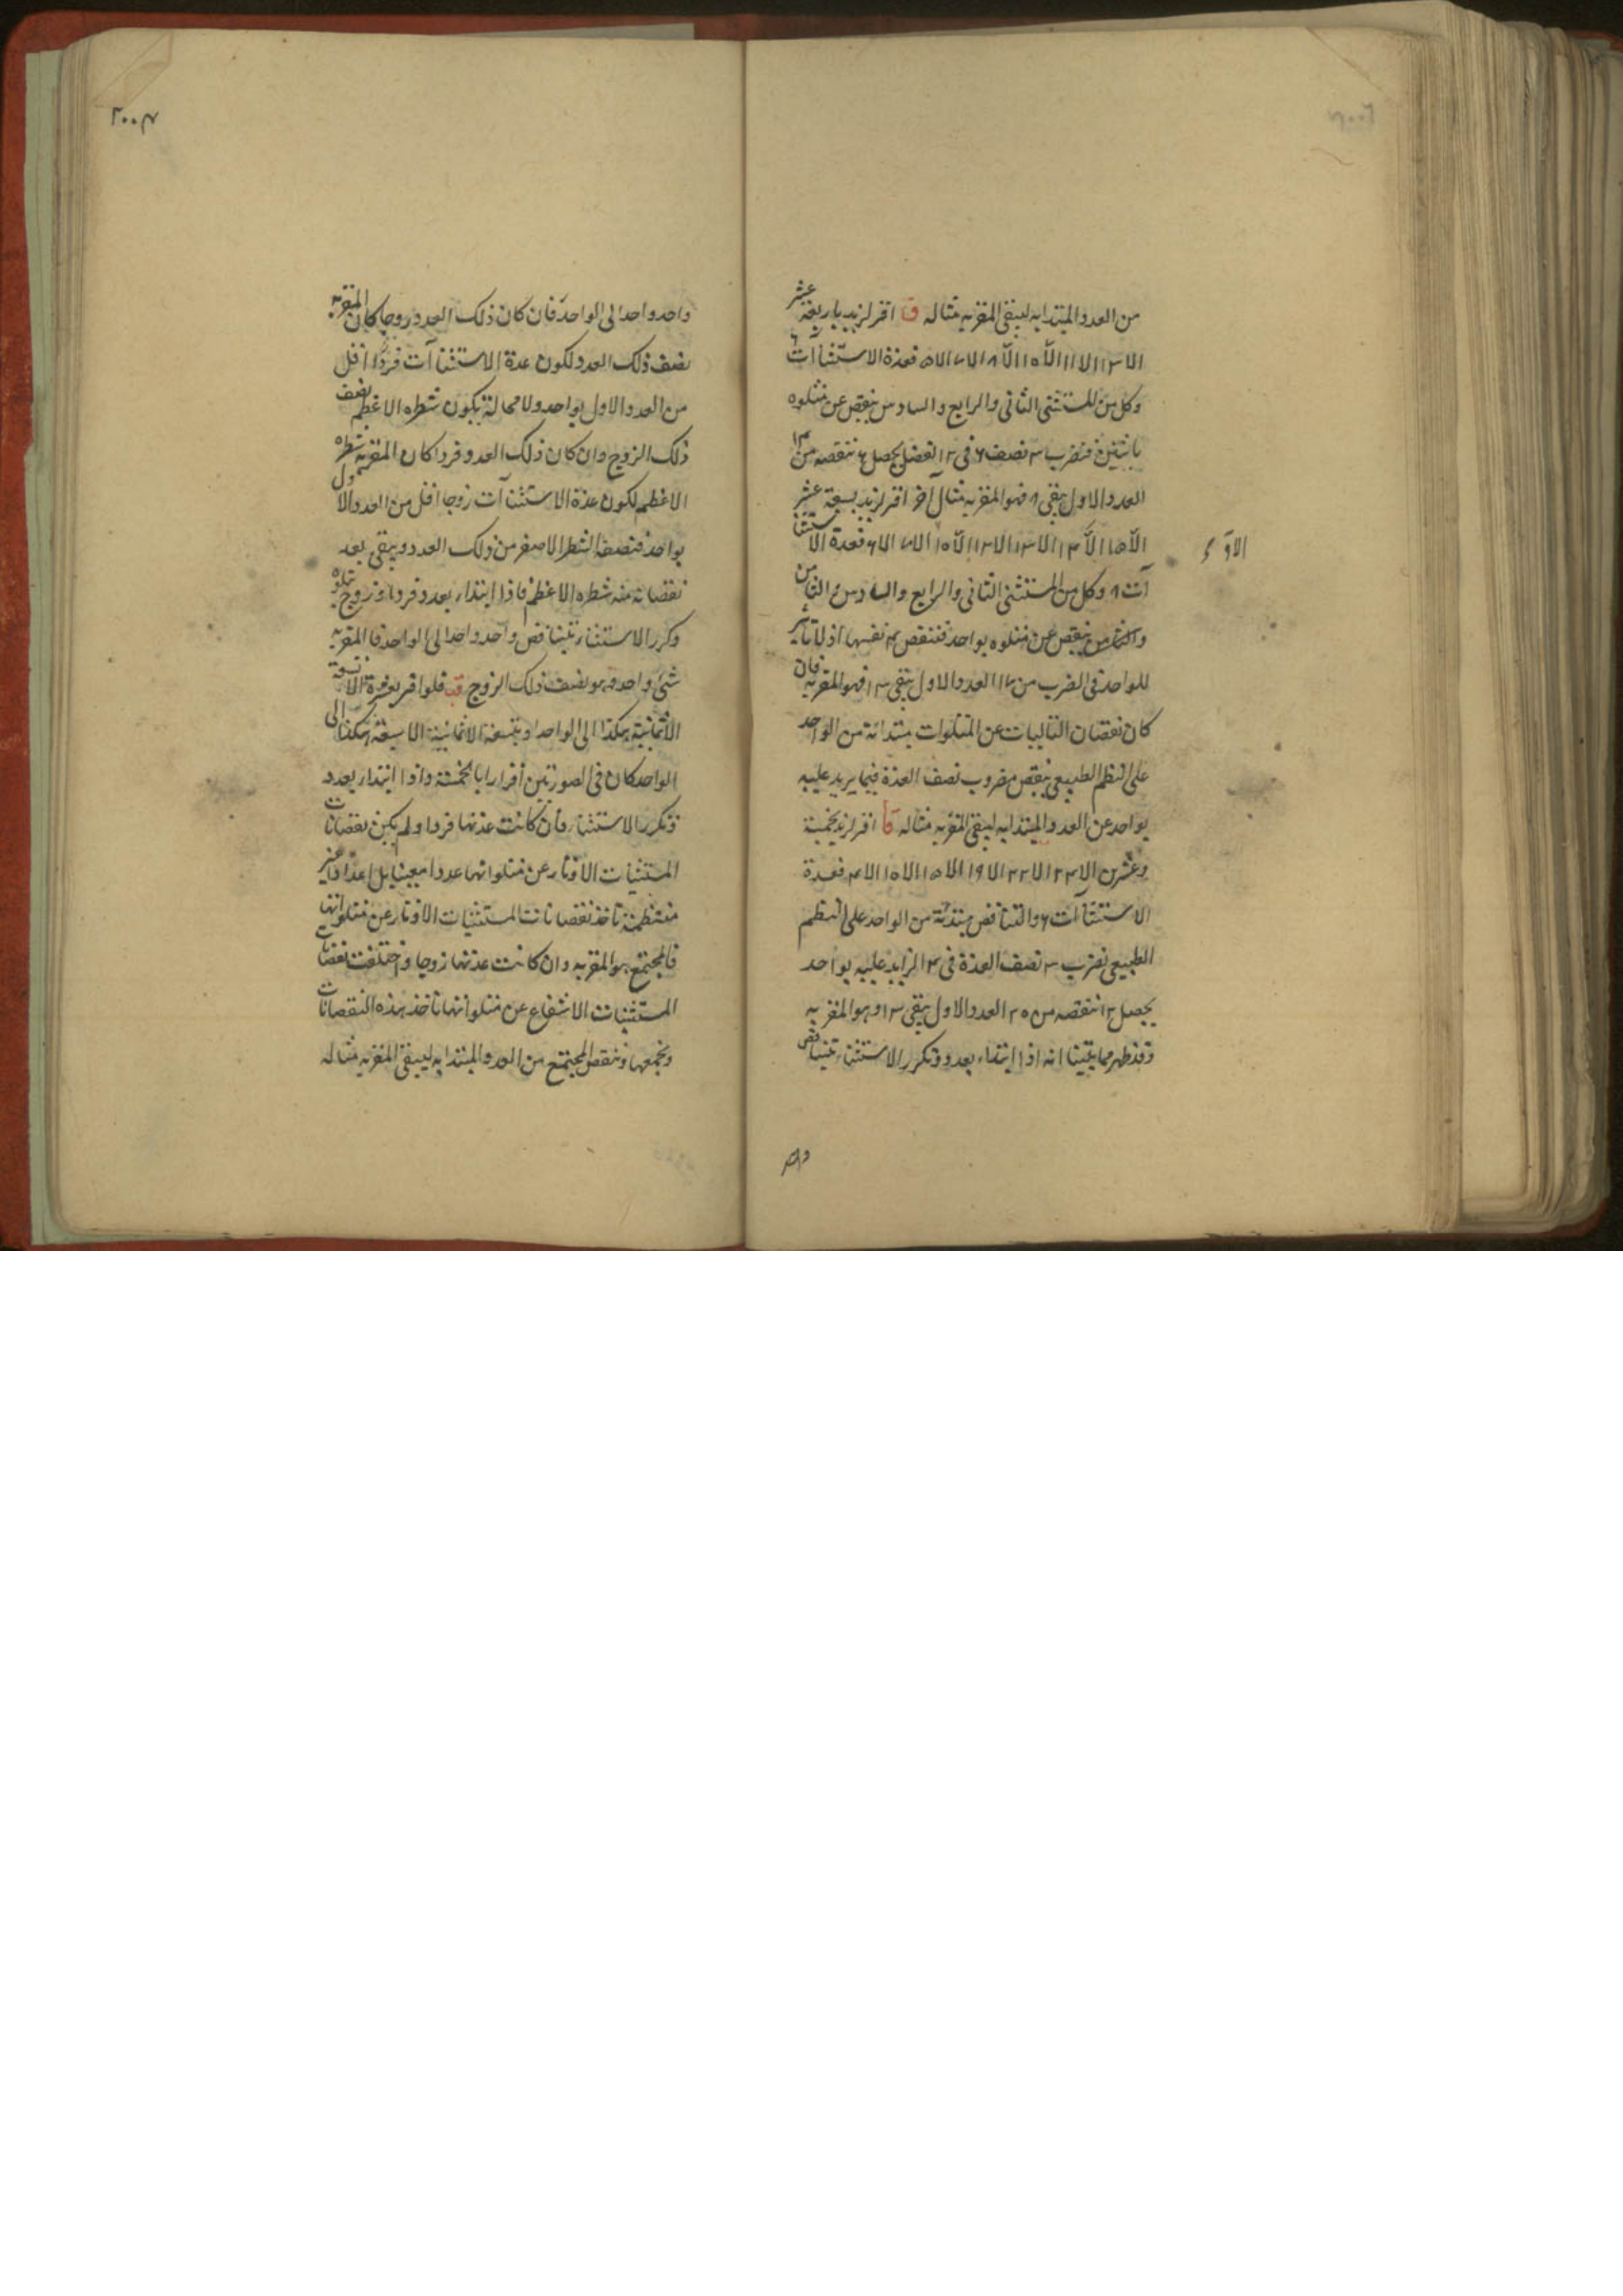 من العدد المبتدابه ليبقى المقربه مثاله ق اقر لزيد باربعة عشر
الا ١٣ الا ١١ الا ١٠ الا ٨ الا ٧ الا ٥ فعدة الاستثناآت ٦
وكل من المستثنى الثانى والرابع والسادس ينقص عن متلوه
باثنين فنضرب ٣ نصف ٦ فى ٢ الفضل يحصل ٦ ننقصه من ١٤
العدد الاول يبقى ٨ فهو المقربه مثال آخر اقر لزيد بسبعة عشر
الا ١٥ الا ١٤ الا ١٣ الا ١٢ الا ١٠ الا ٧ الا ٦ فعدة الاستثنا
آت ٨ وكل من المستثنى الثانى والرابع والسادس والثامن
ينقص عن متلوه بواحد فننقص ٤ نفسها اذ لا تاثير
للواحد فى الضرب من ١٧ العدد الاول يبقى ١٣ فهو المقربه فان
كان نقصان التاليات عن المتلوات مبتدائة من الواحد
على النظم الطبيعى ينقص مضروب نصف العدة فيما يزيد عليه
بواحد عن العدد المبتدابه ليبقى المقربه مثاله قا اقر لزيد بخمسة
وعشرين الا ٢٣ الا ٢٢ الا ١٩ الا ١٥ الا ١٠ الا ٤ فعدة
الاستثناآت ٦ والتناقص مبتدئة من الواحد على النظم
الطبيعى نضرب ٣ نصف العدة فى ٤ الزايد عليه بواحد
يحصل ١٢ ننقصه من ٢٥ العدد الاول يبقى ١٣ وهو المقربه
وقد ظهر مما بيّنا انه اذا ابتداء بعدد وتكرر الاستثناء بتناقص
الاول
واحد واحد الى الواحد فان كان ذلك العدد زوجا كان المقربه
نصف ذلك العدد لكون عدة الاستثناآت فردا اقل
من العدد الاول بواحد ولا محالة يكون شطره الاعظم نصف
ذلك الزوج وان كان ذلك العدد فردا كان المقربه شطره
الاعظم لكون عدة الاستثناآت زوجا اقل من العدد الاول
بواحد فنصفه الشطر الاصغر من ذلك العدد ويبقى بعد
نقصانه منه شطره الاعظم فاذا ابتداء بعدد فرد او زوج يتلوه
وكرر الاستثناء بتناقص واحد واحد الى الواحد فالمقربه
شئ واحد هو نصف ذلك الزوج قب فلو اقر بعشرة الا تسعة
الا ثمانية هكذا الى الواحد او بتسعة الا ثمانية الا سبعة هكذا الى
الواحد كان فى الصورتين اقرارا بالخمسة واذا ابتداء بعدد
وتكرر الاستثناء فان كانت عدتها فردا ولم يكن نقصانات
المستثنيات الاوتار عن متلواتها عددا معينا بل اعدادا غير
منتظمة تاخذ نقصانات المستثنيات الاوتار عن متلواتها
فالمجتمع هو المقربه وان كانت عدتها زوجا واختلفت نقصانات
المستثنيات الاشفاع عن متلواتها تاخذ هذه النقصانات
وتجمعها وتنقص المجتمع من العدد المبتدابه ليبقى المقربه مثاله